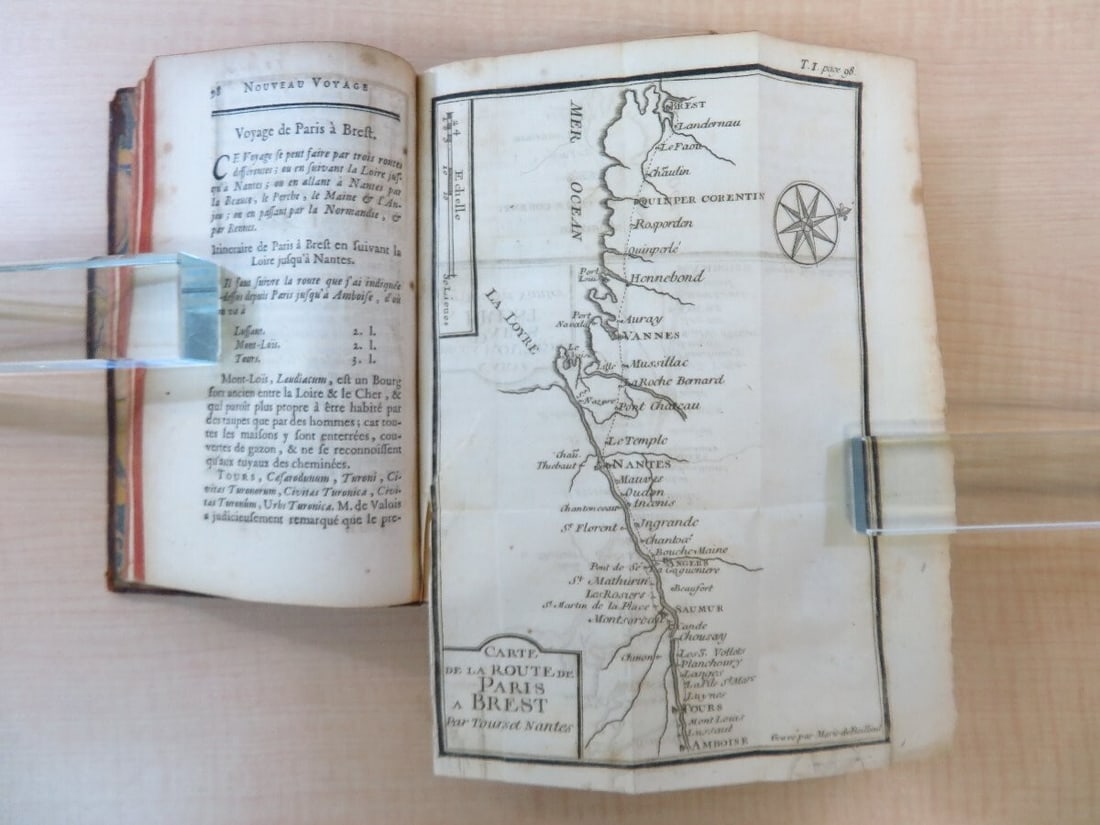 98 NOUVEAU VOYAGE
Voyage de Paris à Brest.
CE Voyage se peut faire par trois routes
différentes ; ou en suivant la Loire jus-
qu'à Nantes ; ou en allant à Nantes par
la Beauce, le Perche, le Maine & l'An-
jou ; ou en passant par la Normandie, &
par Rennes.
Itineraire de Paris à Brest en suivant la
Loire jusqu'à Nantes.
Il faut suivre la route que j'ai indiquée
dessus depuis Paris jusqu'à Amboise, d'où
on va à
Lussant. 2. l.
Mont-Lois. 2. l.
Tours. 3. l.
Mont-Lois, Laudiacum, est un Bourg
fort ancien entre la Loire & le Cher, &
qui paroît plus propre à être habité par
des taupes que par des hommes ; car tou-
tes les maisons y sont enterrées, cou-
vertes de gazon, & ne se reconnoissent
qu'aux tuyaux des cheminées.
TOURS, Cæsarodunum, Turoni, Ci-
vitas Turonorum, Civitas Turonica, Civi-
tas Turonûm, Urbs Turonica. M. de Valois
a judicieusement remarqué que le pre-
T.I. page 98.
Echelle
30 Lieues
MER OCEAN
BREST
Landernau
Le Faou
Chaulin
QUINPER CORENTIN
Rosporden
Quinperlé
Port Louis
Hennebond
LA LOYRE
Port Navalo
Auray
VANNES
Mussillac
La Roche Bernard
St Nazere
Pont Chateau
Le Temple
Chau. Thiebaut
NANTES
Mauves
Oudon
Ancenis
Chantonceau
St Florent
Ingrande
Chantocé
Bouche Maine
ANGERS
Pont de Sé
La Gagnoniere
St Mathurin
Beaufort
Les Rosiers
St Martin de la Place
SAUMUR
Montsoreau
Cande
Chousay
Chinon
Les 3. Vollets
Planchoury
Langes
La Pile St Marc
Luynes
TOURS
Mont Louis
Lussaud
AMBOISE
CARTE
DE LA ROUTE DE
PARIS
A BREST
Par Tours et Nantes